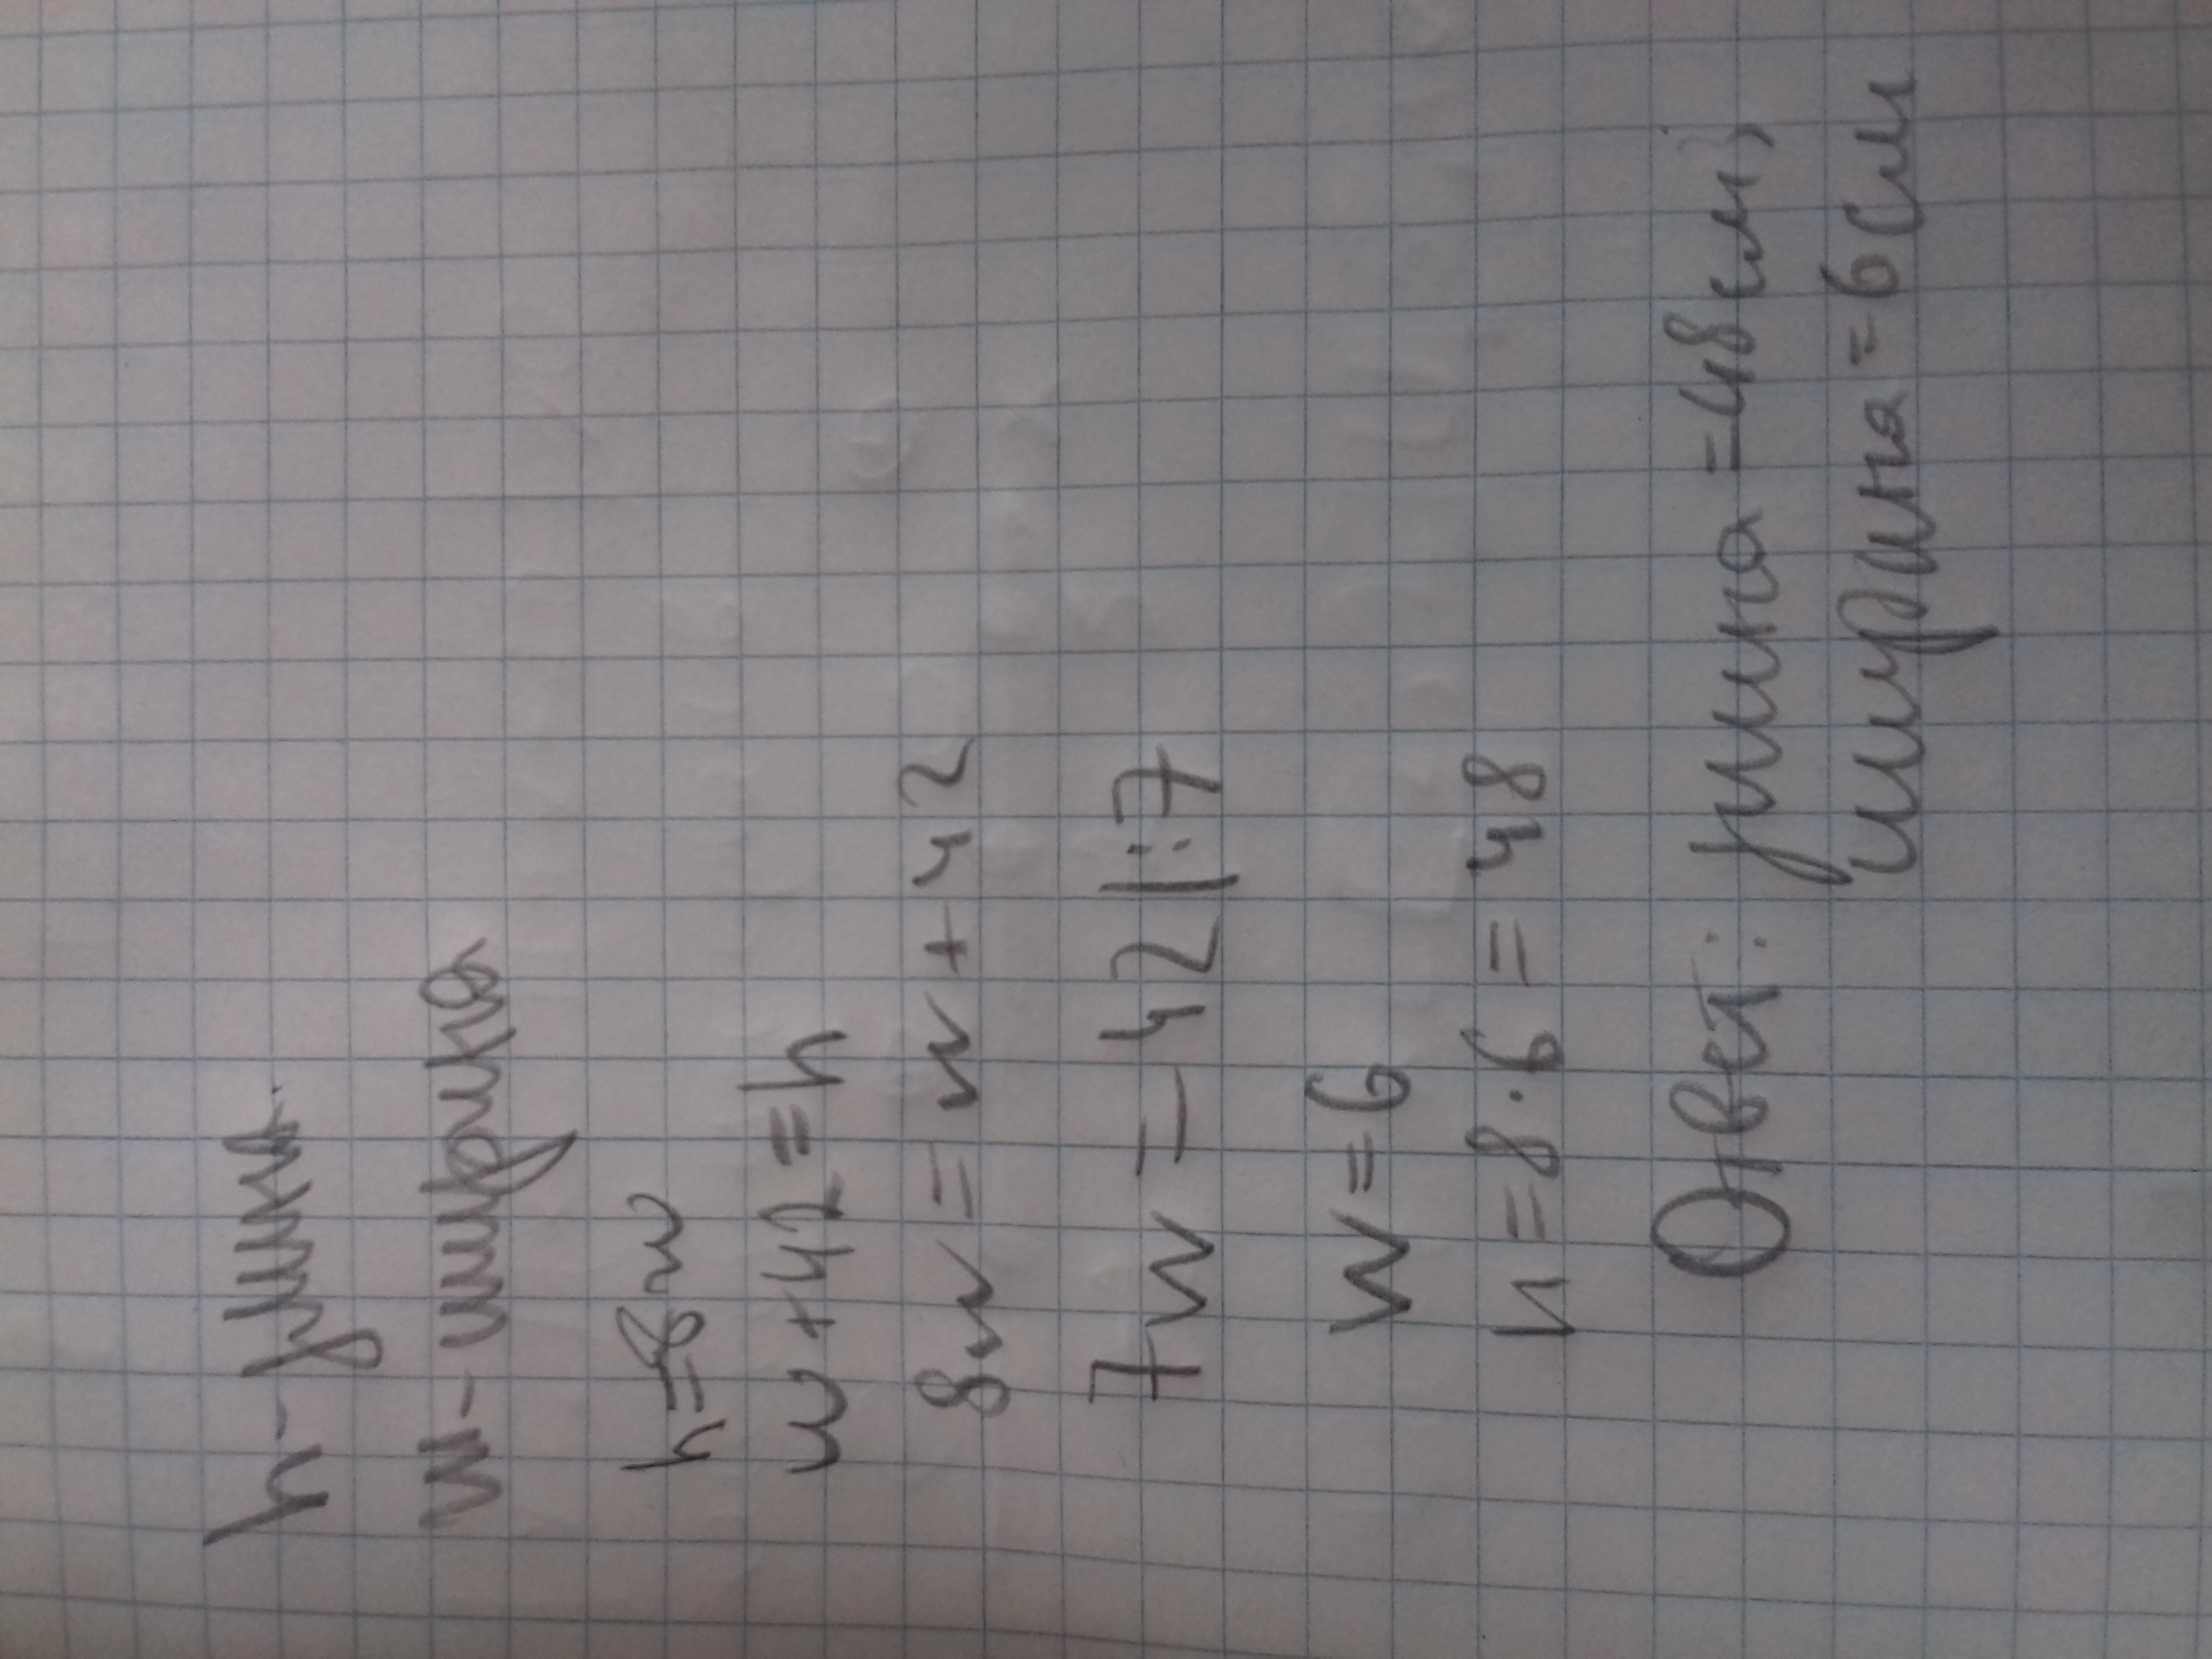 h - длина
w - ширина
h=8w
w+42=h
8w = w + 42
7w = 42 |:7
w = 6
h = 8 · 6 = 48
Ответ: длина = 48 см;
ширина = 6 см